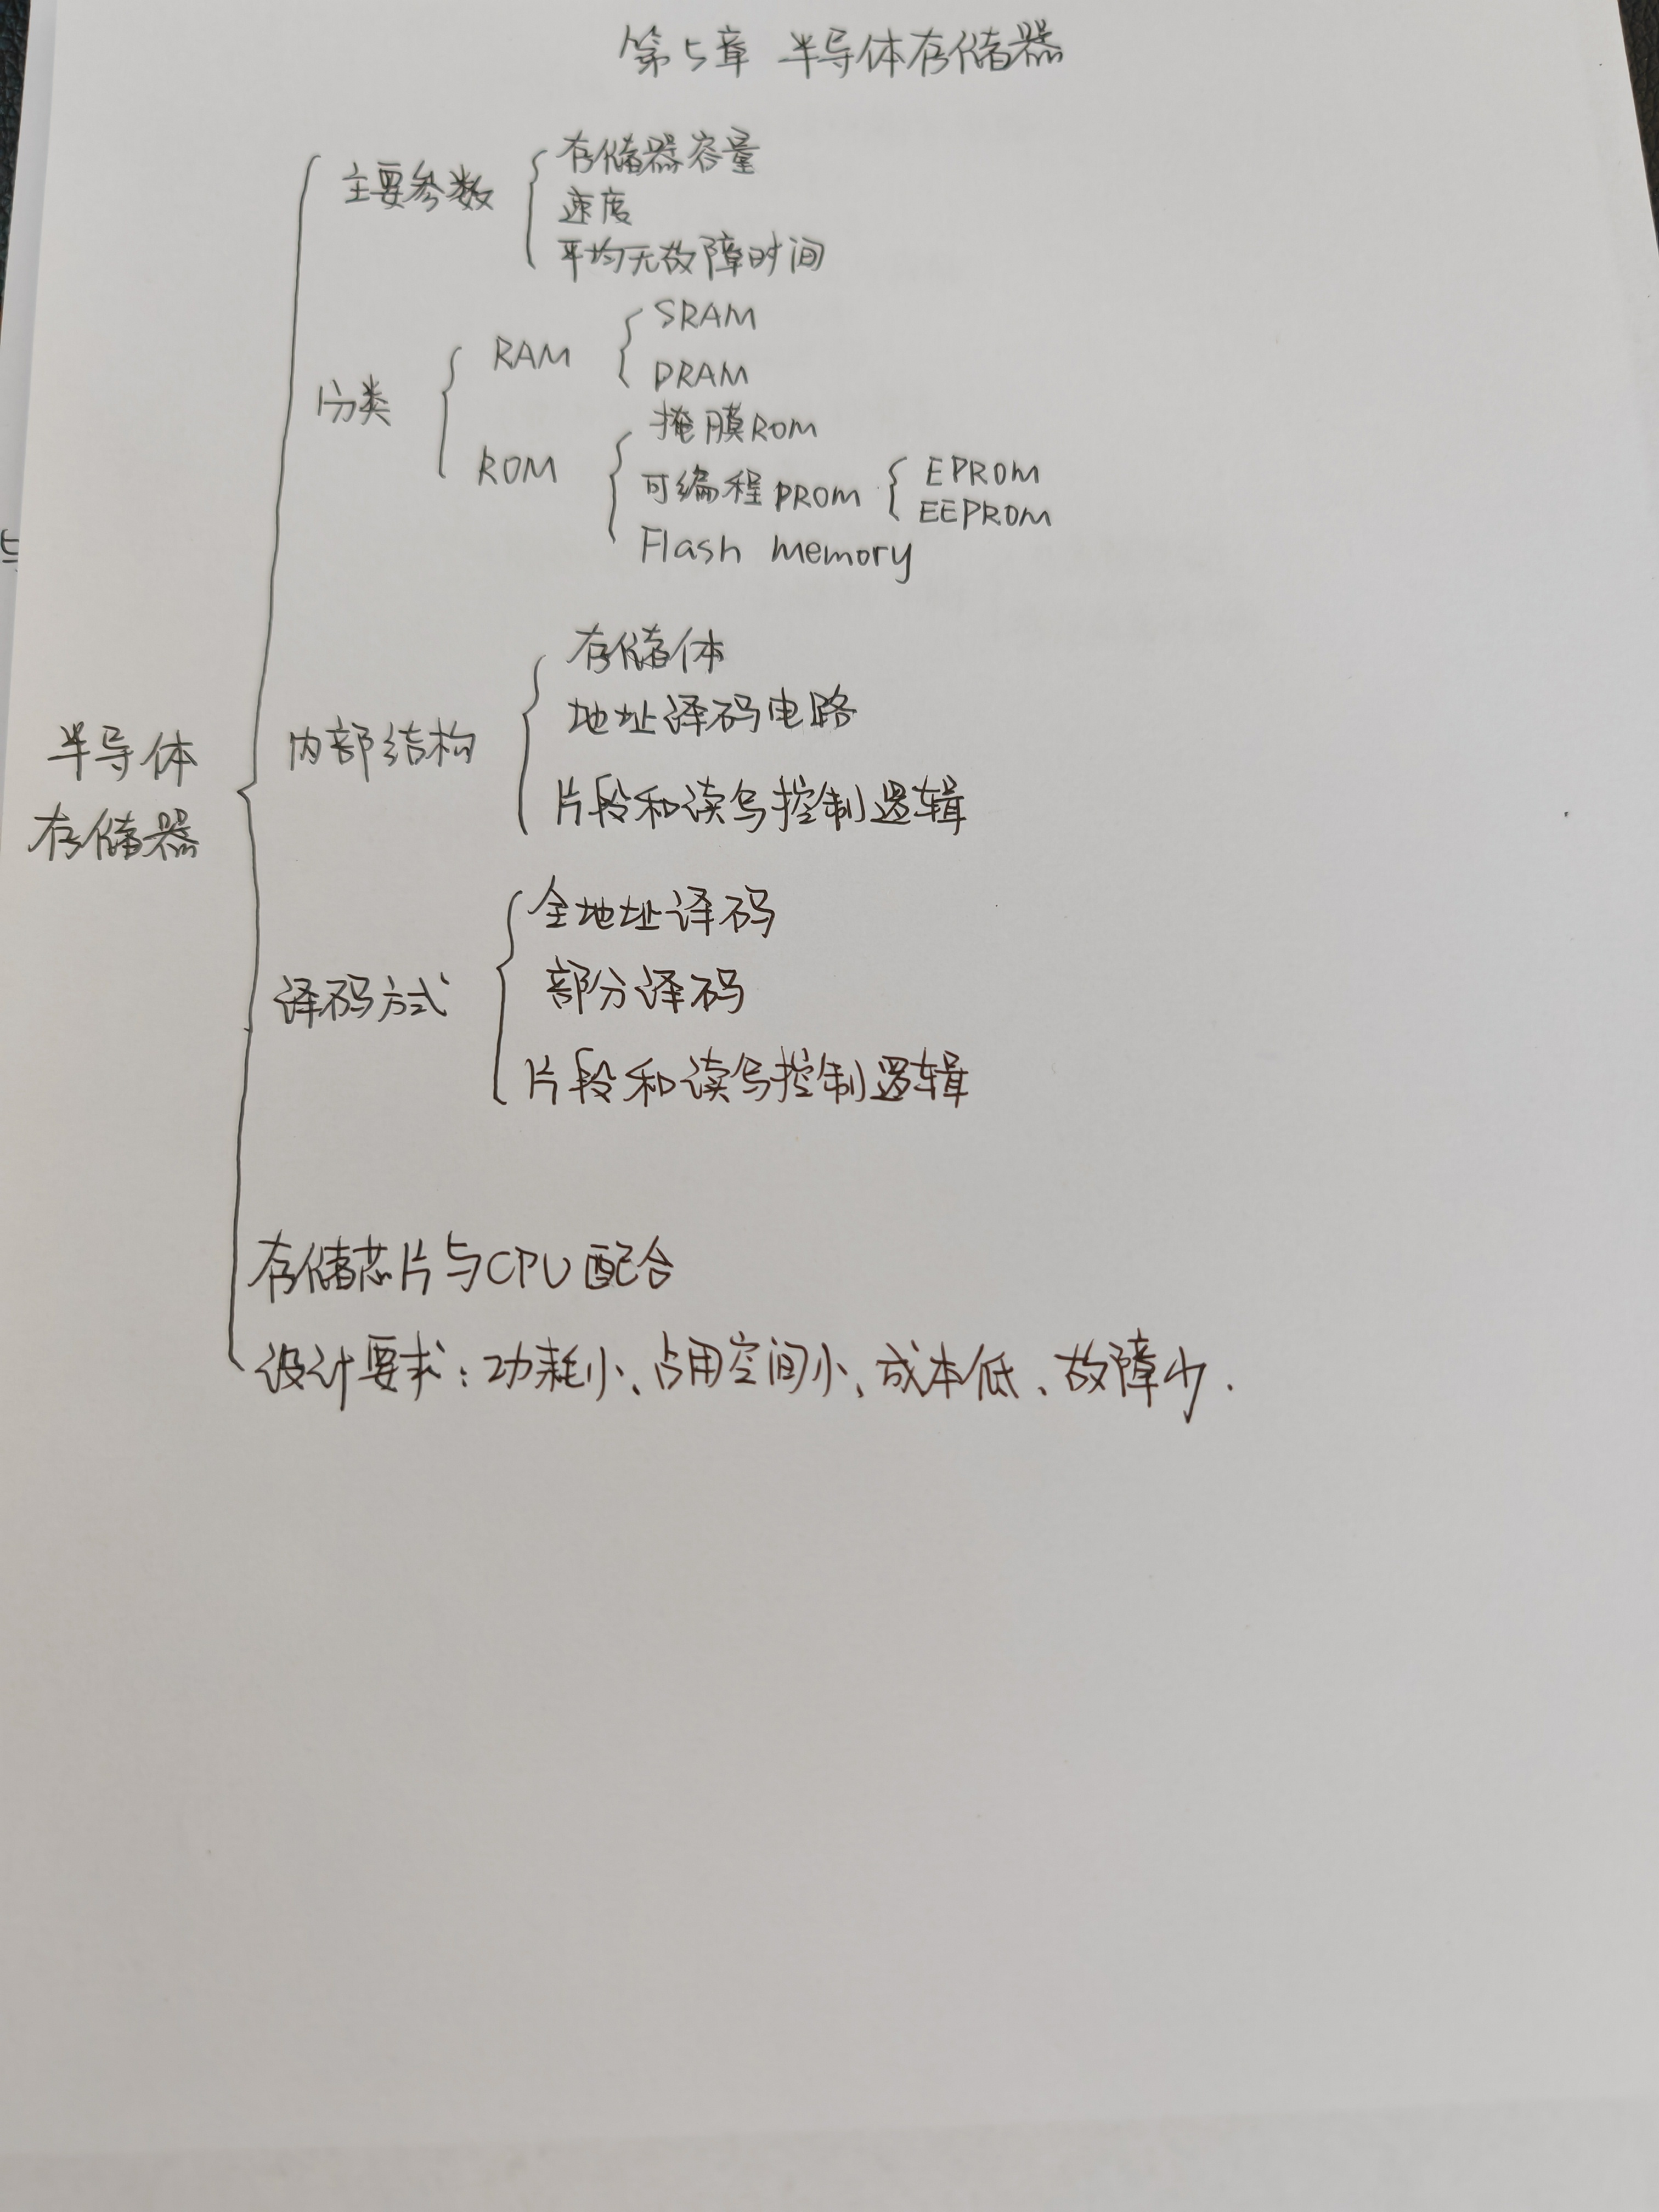 第5章 半导体存储器
主要参数
存储器容量
速度
平均无故障时间
分类
RAM
SRAM
DRAM
ROM
掩膜ROM
可编程PROM
EPROM
EEPROM
Flash memory
半导体
存储器
内部结构
存储体
地址译码电路
片段和读写控制逻辑
译码方式
全地址译码
部分译码
片段和读写控制逻辑
存储芯片与CPU配合
设计要求：功耗小、占用空间小、成本低、故障少.